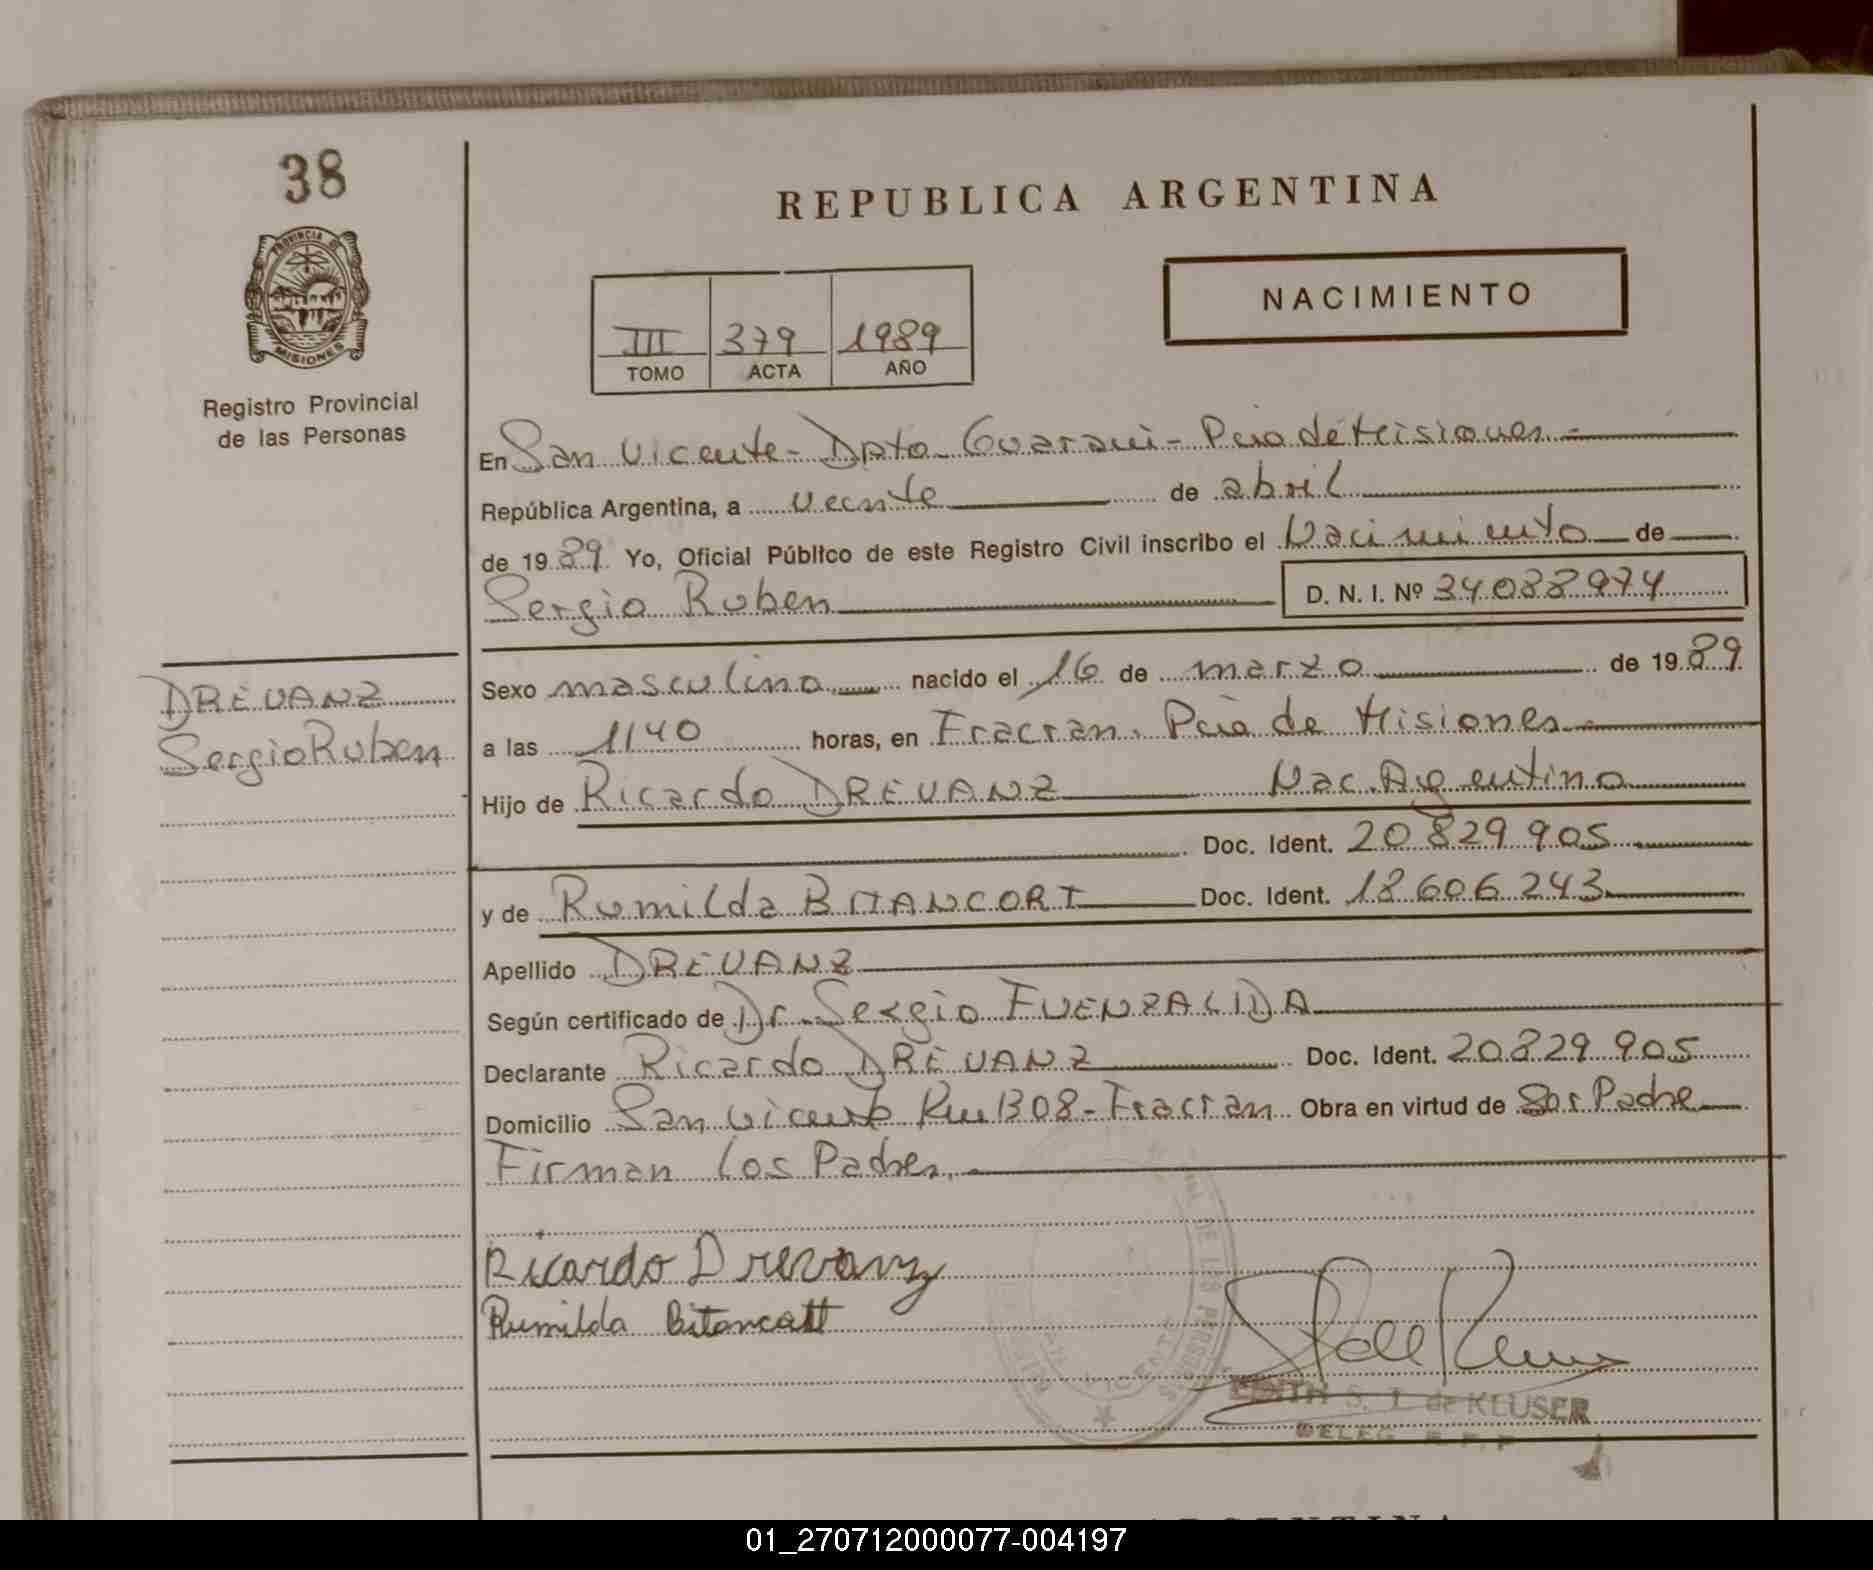 38
PROVINCIA DE
MISIONES
Registro Provincial
de las Personas
REPUBLICA ARGENTINA
NACIMIENTO
III 379 1989
TOMO ACTA AÑO
En San Vicente - Dpto Guaraní - Pcia de Misiones.-
República Argentina, a veinte de abril
de 1989 Yo, Oficial Público de este Registro Civil inscribo el Nacimiento de
Sergio Ruben D. N. I. Nº 34088974
DREVANZ
Sergio Ruben
Sexo masculino nacido el 16 de marzo de 1989
a las 1140 horas, en Fracran. Pcia de Misiones.
Hijo de Ricardo DREVANZ Nac. Argentino
Doc. Ident. 20.829.905
y de Rumilda BITANCORT Doc. Ident. 18.606.243
Apellido DREVANZ
Según certificado de Dr. Sergio FUENZALIDA
Declarante Ricardo DREVANZ Doc. Ident. 20.829.905
Domicilio San Vicente Km 1308 - Fracran Obra en virtud de Ser Padre
Firman los Padres.
Ricardo Drevanz
Rumilda Bitancatt
EDITH S. J. de KLUSER
DELEG. R. P. P.
ARGENTINA
01_270712000077-004197